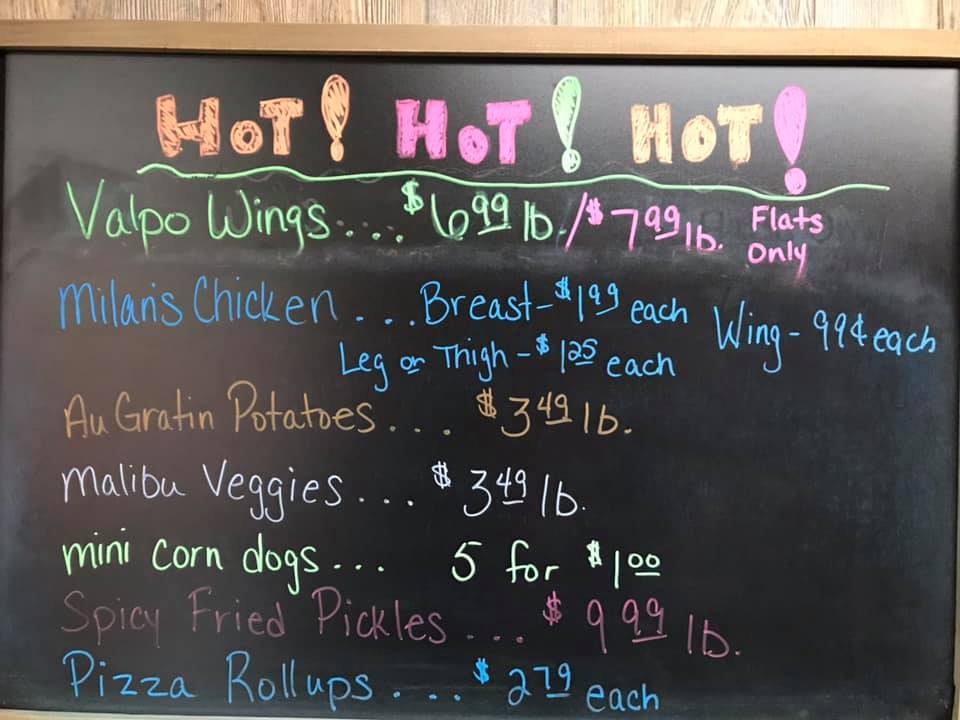 HOT! HOT! HOT!
Valpo Wings.... $6.99 lb./$7.99 lb. Flats Only
Milan's Chicken . . . Breast - $1.99 each Wing - 99¢ each
Leg or Thigh - $1.25 each
Au Gratin Potatoes . . . $3.49 lb.
Malibu Veggies . . . $3.49 lb.
mini corn dogs . . . 5 for $1.00
Spicy Fried Pickles . . . $9.99 lb.
Pizza Rollups . . . $2.79 each